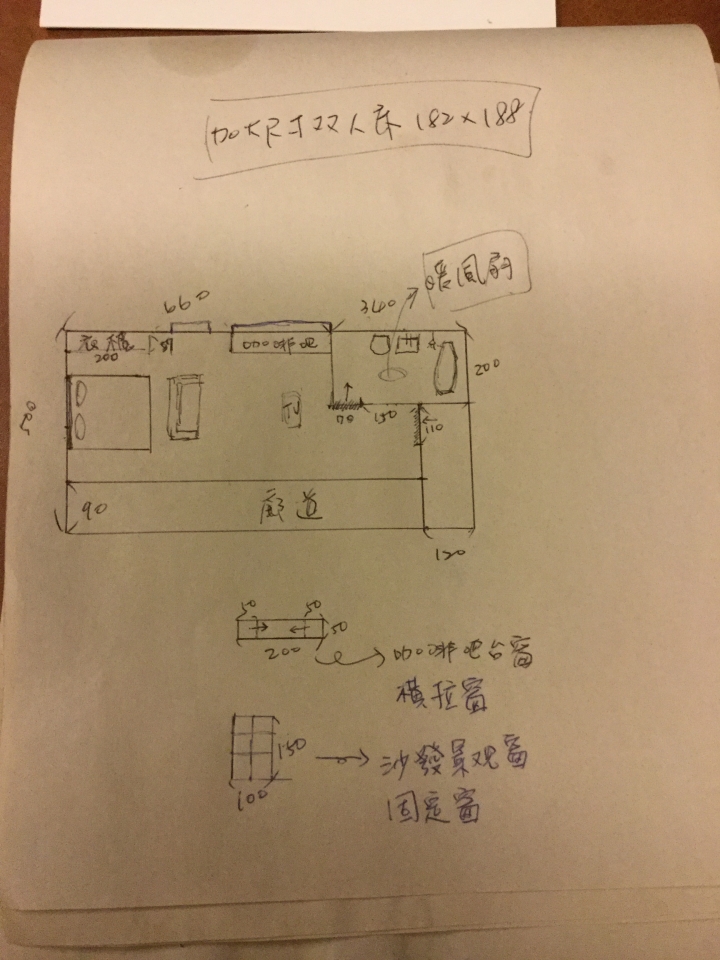 加大尺寸双人床 182×188
暖風扇
660
340
衣櫃
200
咖啡吧
200
500
TV
70
150
110
90
廊道
120
50
50
50
200
咖啡吧台窗
橫拉窗
150
100
沙發景观窗
固定窗